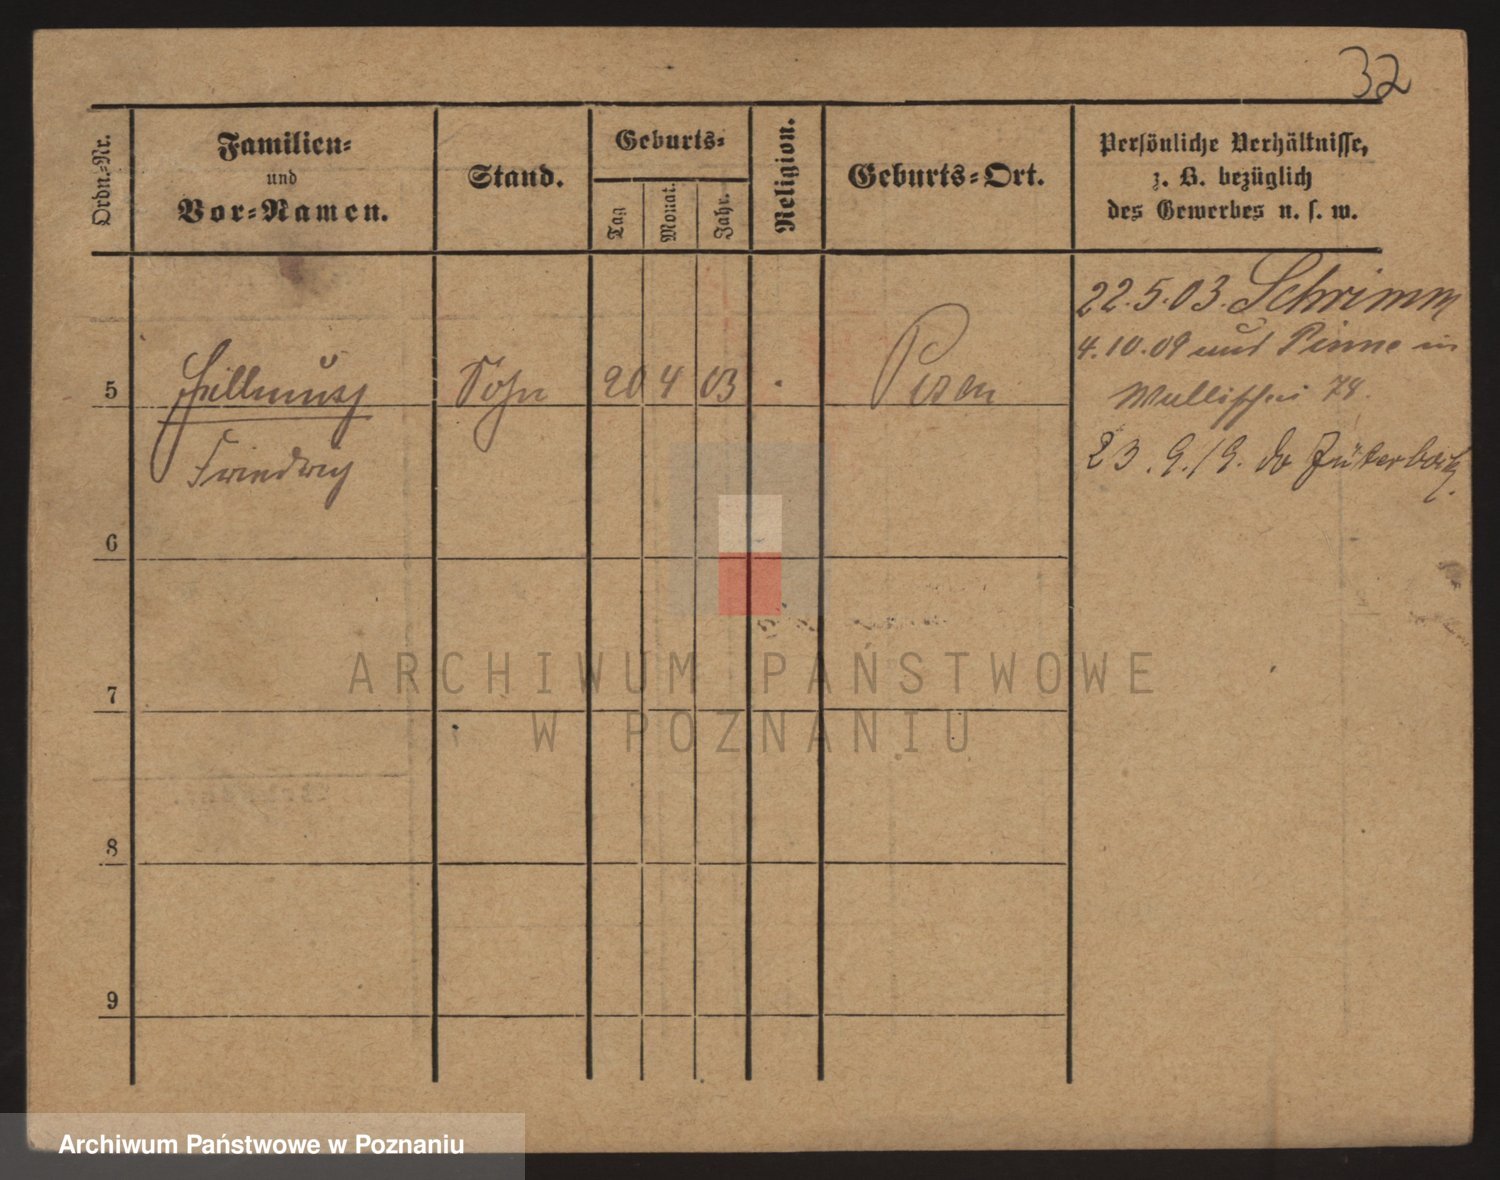 32
Ordn.-Nr.
Familien-
und
Vor-Namen.
Stand.
Geburts-
Tag
Monat.
Jahr.
Religion.
Geburts-Ort.
Persönliche Verhältnisse,
z. B. bezüglich
des Gewerbes u. s. w.
22.5.03. Schrimm
4.10.09 und Pinne in
Wallischei 78.
23.9.19. do Jüterbock
5 Sohn 20 4 03 · Posen
6
7
8
9
ARCHIWUM PAŃSTWOWE
W POZNANIU
Archiwum Państwowe w Poznaniu